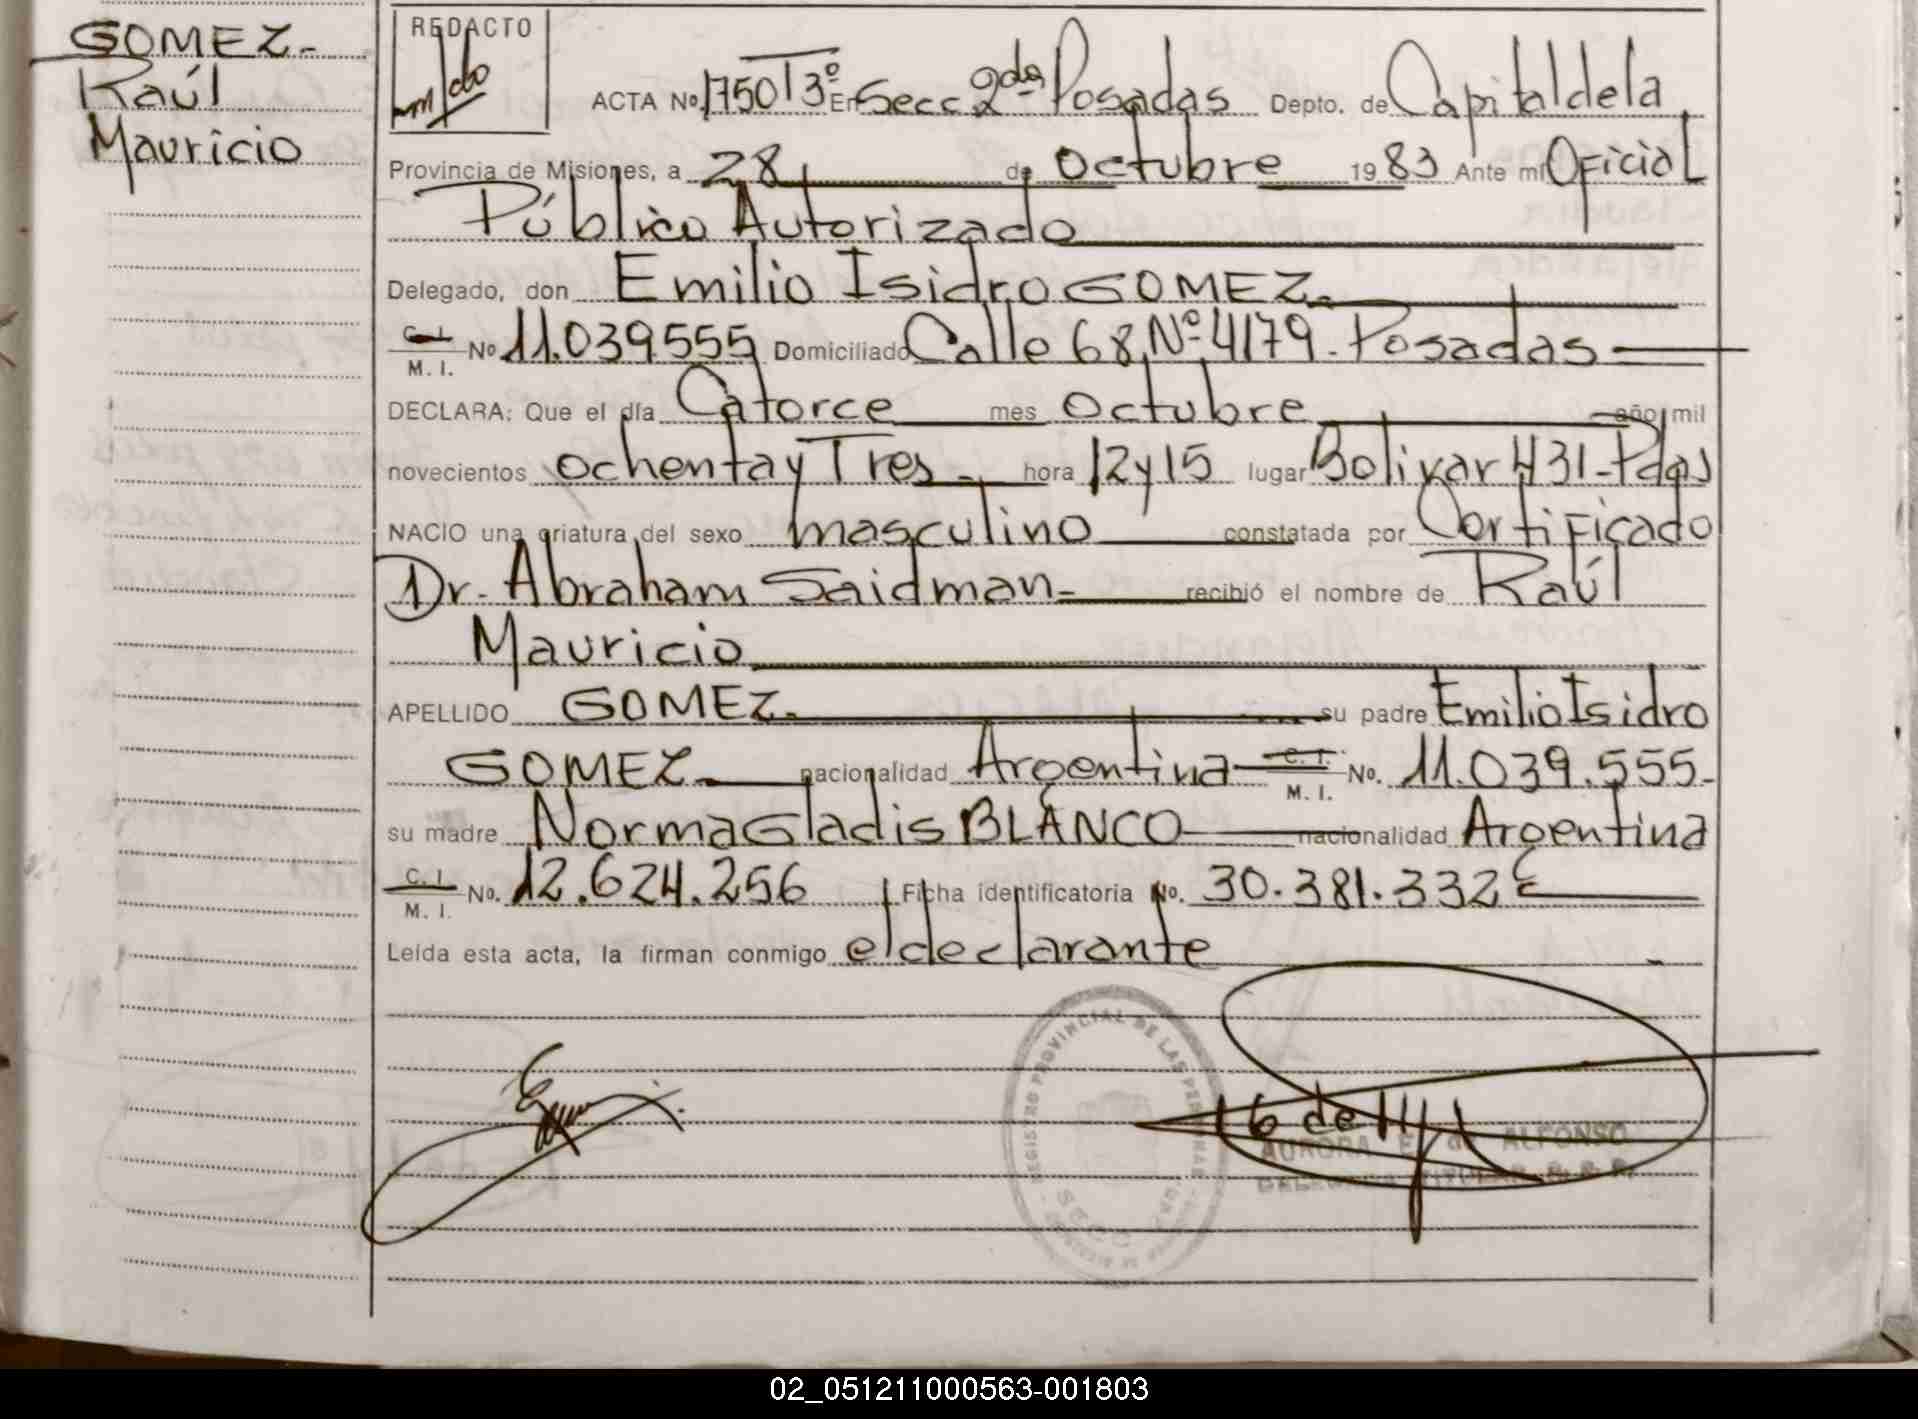 GOMEZ.-
Raúl
Mauricio
REDACTO
ACTA No. 1750 T 3º En Secc. 2da Posadas Depto. de Capital de la
Provincia de Misiones, a 28 de Octubre 1983 Ante mi Oficial
Público Autorizado
Delegado, don Emilio Isidro GOMEZ.
C. I. M. I. No 11.039.555 Domiciliado Calle 68 Nº 4179 - Posadas
DECLARA: Que el día Catorce mes octubre año mil
novecientos ochenta y Tres - hora 12 y 15 lugar Bolivar 431 - Pdas
NACIO una criatura del sexo masculino constatada por Certificado
Dr. Abraham Saidman - recibió el nombre de Raúl
Mauricio
APELLIDO GOMEZ. su padre Emilio Isidro
GOMEZ nacionalidad Argentina C. I. M. I. No. 11.039.555.-
su madre Norma Gladis BLANCO nacionalidad Argentina
C. I. M. I. No. 12.624.256 Ficha identificatoria No. 30.381.332
Leída esta acta, la firman conmigo el declarante
REGISTRO PROVINCIAL DE LAS PERSONAS
AURORA E. de ALFONSO
DELEGADA TITULAR
02_051211000563-001803